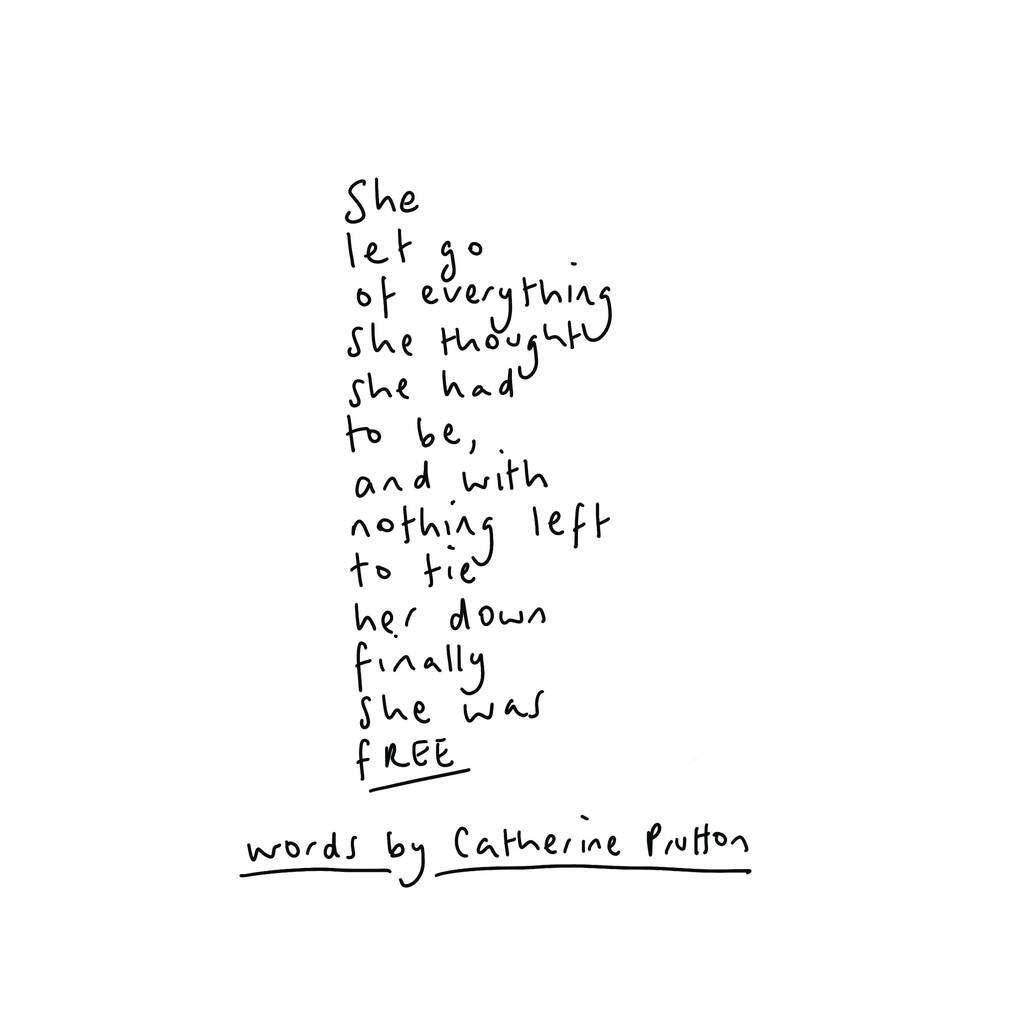 She
let go
of everything
she thought
she had
to be,
and with
nothing left
to tie
her down
finally
she was
fREE
words by Catherine Prutton